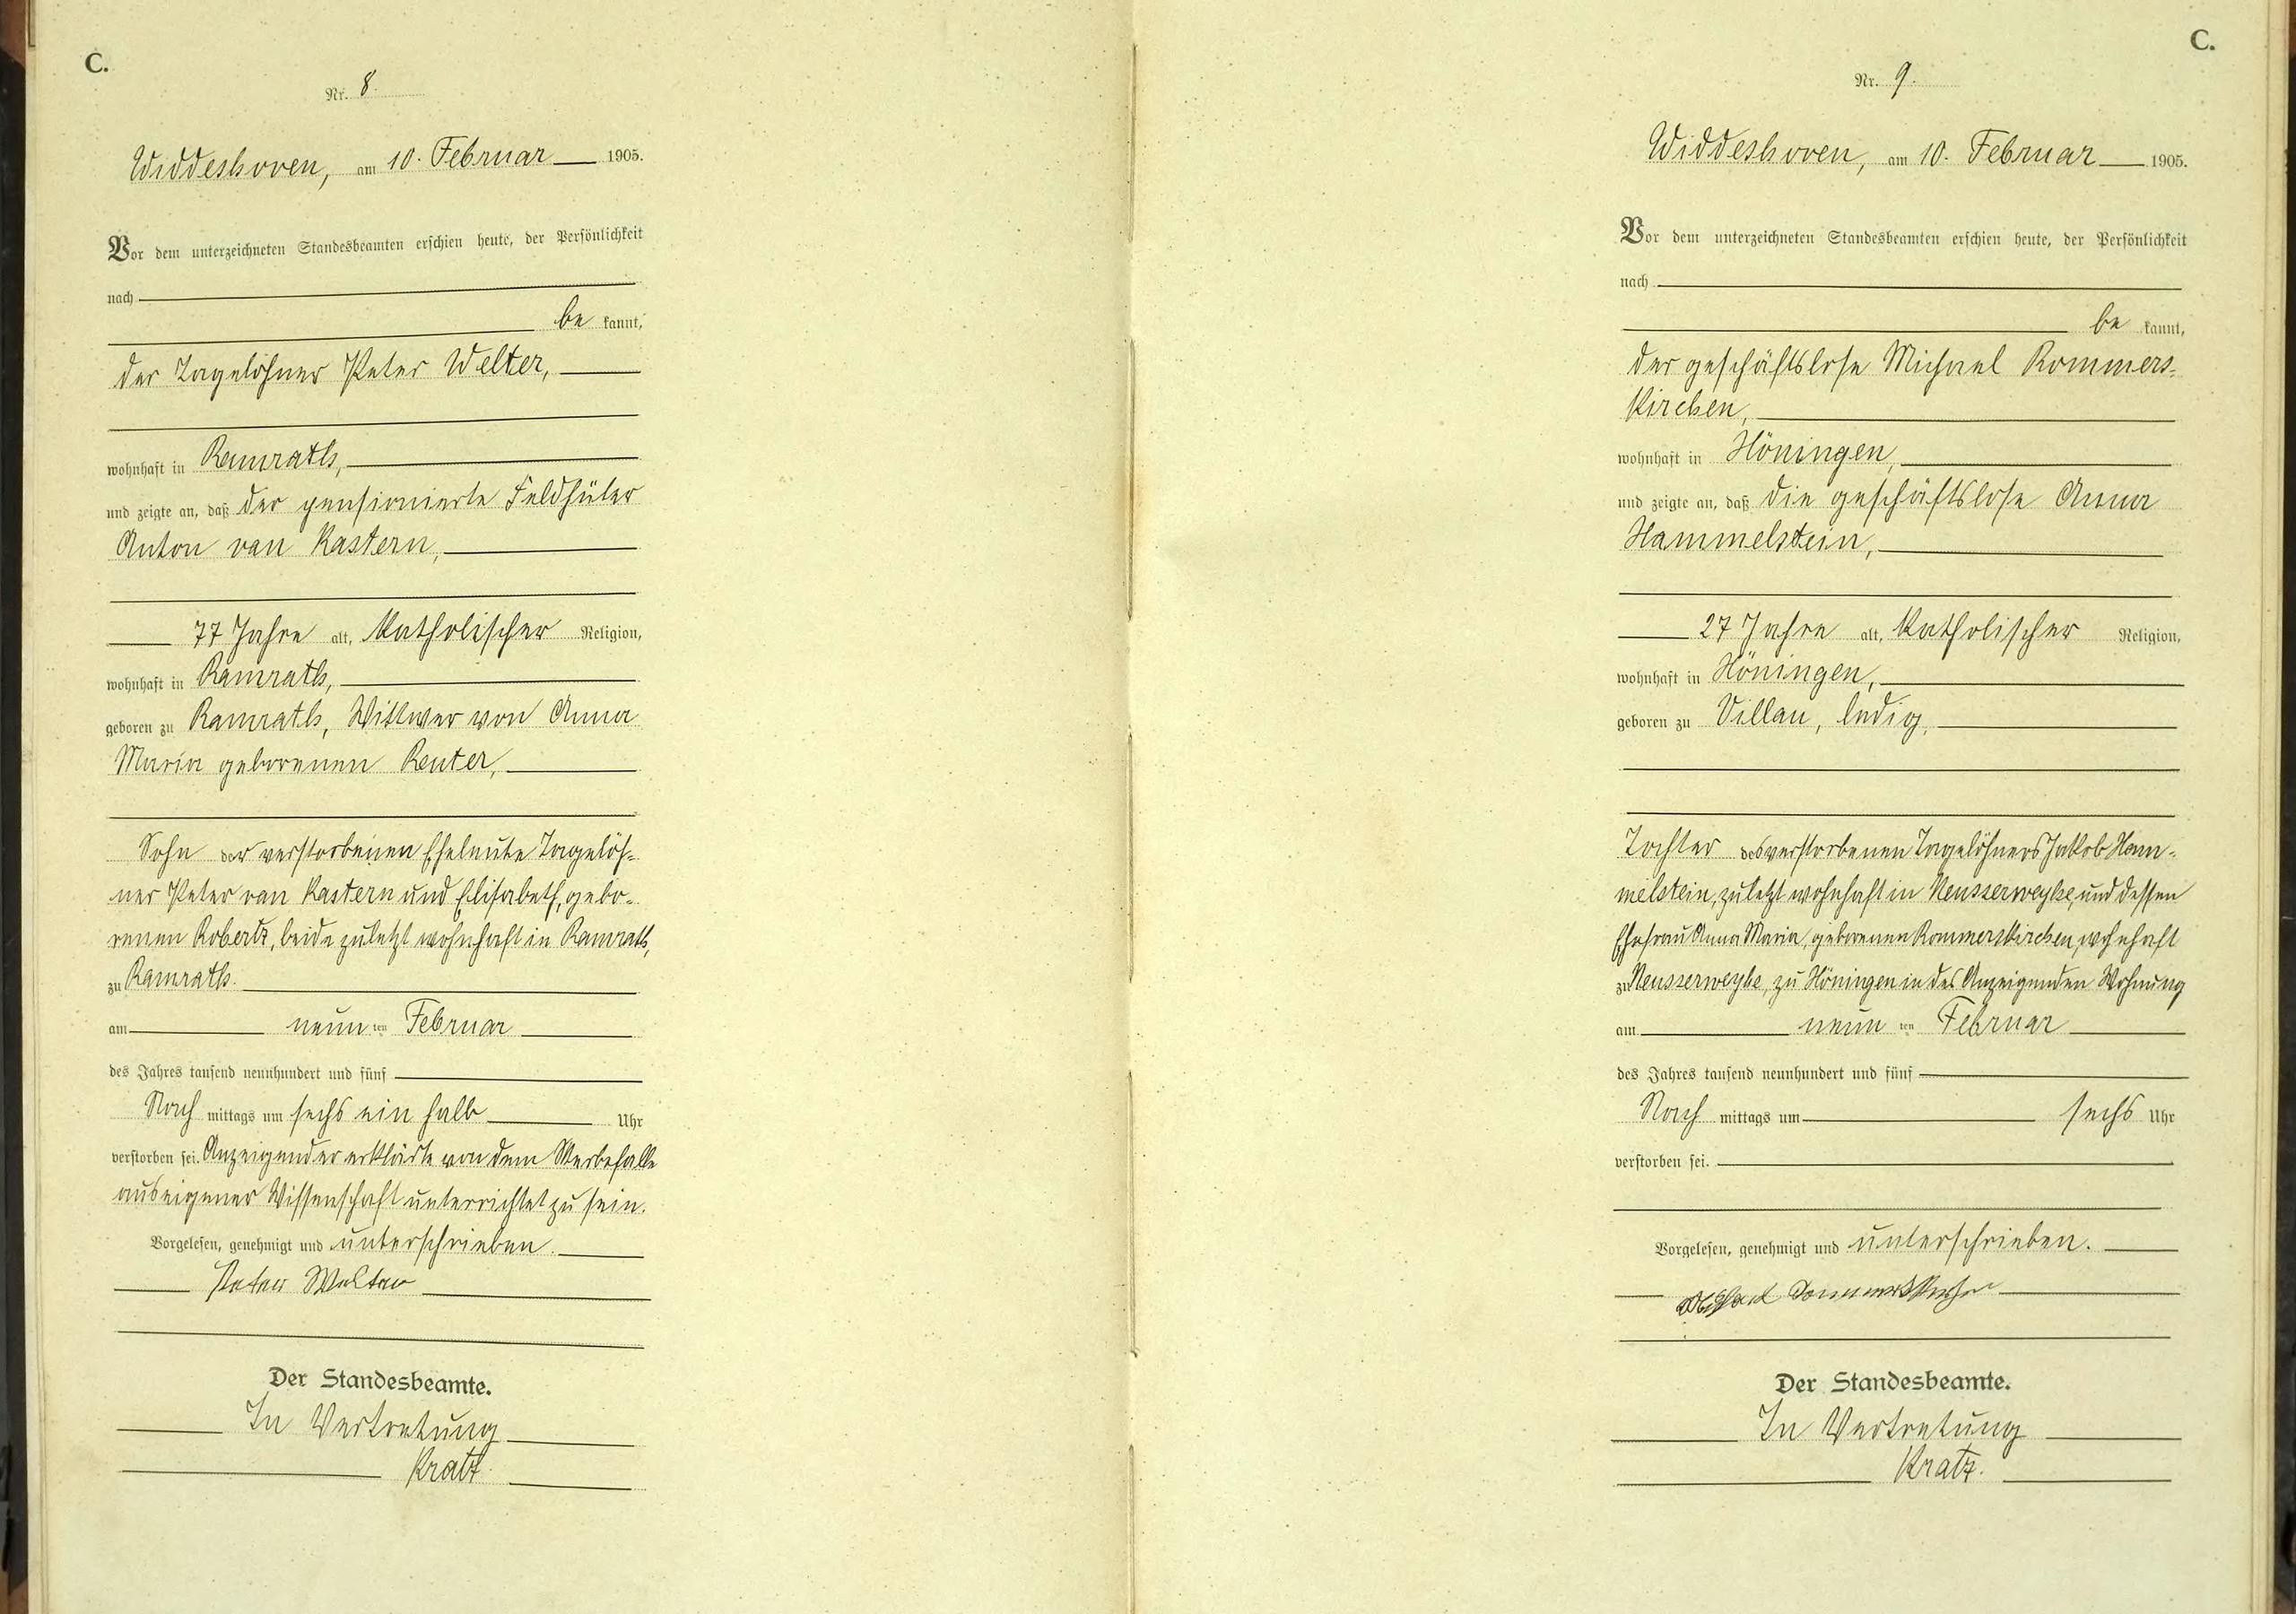 C.
Nr. 8.
Widdeshoven, am 10. Februar 1905.
Vor dem unterzeichneten Standesbeamten erschien heute, der Persönlichkeit
nach
be kannt,
der Tagelöhner Peter Welter,
wohnhaft in Ramrath,
und zeigte an, daß der pensionierte Feldhüter
Anton van Kastern,
77 Jahre alt, katholischer Religion,
wohnhaft in Ramrath,
geboren zu Ramrath, Wittwer von Anna
Maria geborenen Reuter,
Sohn der verstorbenen Eheleute Tagelöh-
ner Peter van Kastern und Elisabeth, gebo-
renen Robertz, beide zuletzt wohnhaft in Ramrath,
zu Ramrath.
am neun ten Februar
des Jahres tausend neunhundert und fünf
Nach mittags um sechs ein halb Uhr
verstorben sei. Anzeigender erklärte von dem Sterbefalle
aus eigener Wissenschaft unterrichtet zu sein.
Vorgelesen, genehmigt und unterschrieben.
Peter Welter
Der Standesbeamte.
In Vertretung
Kratz.
C.
Nr. 9.
Widdeshoven, am 10. Februar 1905.
Vor dem unterzeichneten Standesbeamten erschien heute, der Persönlichkeit
nach
be kannt,
der geschäftslose Michael Rommers-
kirchen,
wohnhaft in Höningen,
und zeigte an, daß die geschäftslose Anna
Hammelstein,
27 Jahre alt, katholischer Religion,
wohnhaft in Höningen,
geboren zu Villau, ledig,
Tochter des verstorbenen Tagelöhners Jakob Ham-
melstein, zuletzt wohnhaft in Neusserweyhe, und dessen
Ehefrau Anna Maria, geborenen Rommerskirchen, wohnhaft
zu Neusserweyhe, zu Höningen in des Anzeigenden Wohnung
am neun ten Februar
des Jahres tausend neunhundert und fünf
Nach mittags um sechs Uhr
verstorben sei.
Vorgelesen, genehmigt und unterschrieben.
Der Standesbeamte.
In Vertretung
Kratz.